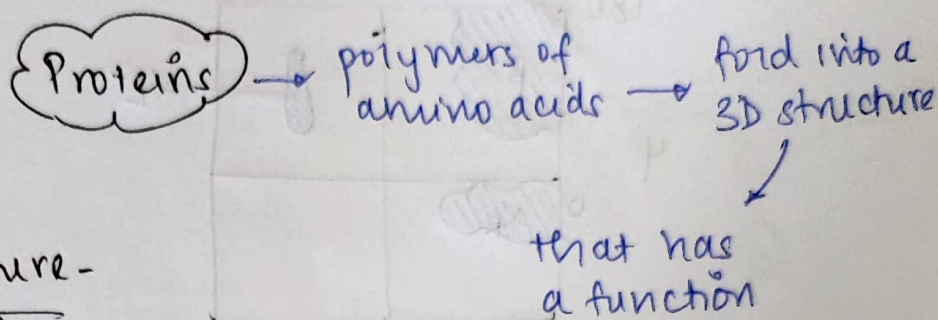 Proteins → polymers of
amino acids → fold into a
3D structure
that has
a function
ure-